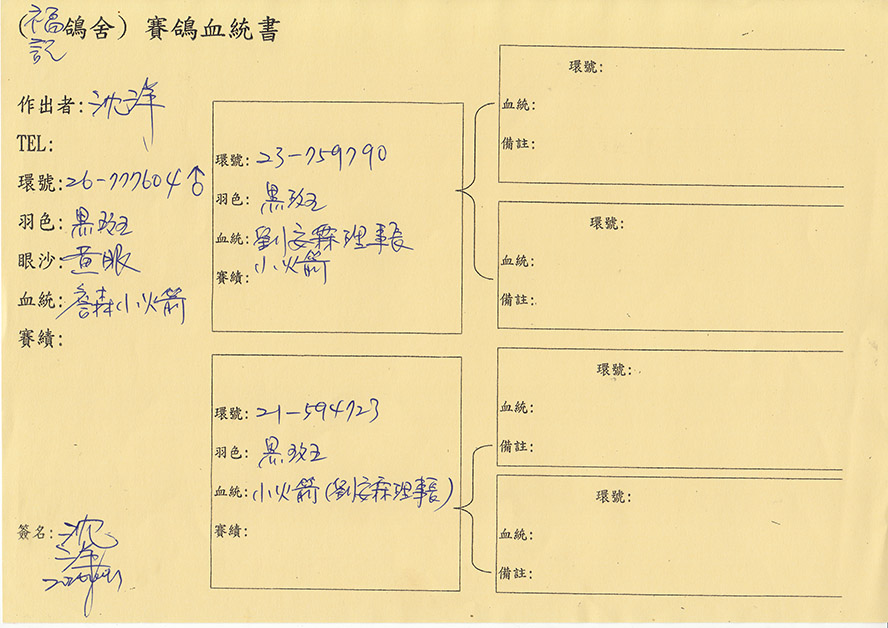 (福記鴿舍) 賽鴿血統書
作出者: 沈洋
TEL:
環號: 26-777604 ♂
羽色: 黑斑
眼沙: 黃眼
血統: 詹森小火箭
賽績:
簽名: 沈洋
環號: 23-759790
羽色: 黑斑
血統: 劉安霖理事長
小火箭
賽績:
環號: 21-594723
羽色: 黑斑
血統: 小火箭(劉安霖理事長)
賽績:
環號:
血統:
備註:
環號:
血統:
備註:
環號:
血統:
備註:
環號:
血統:
備註: